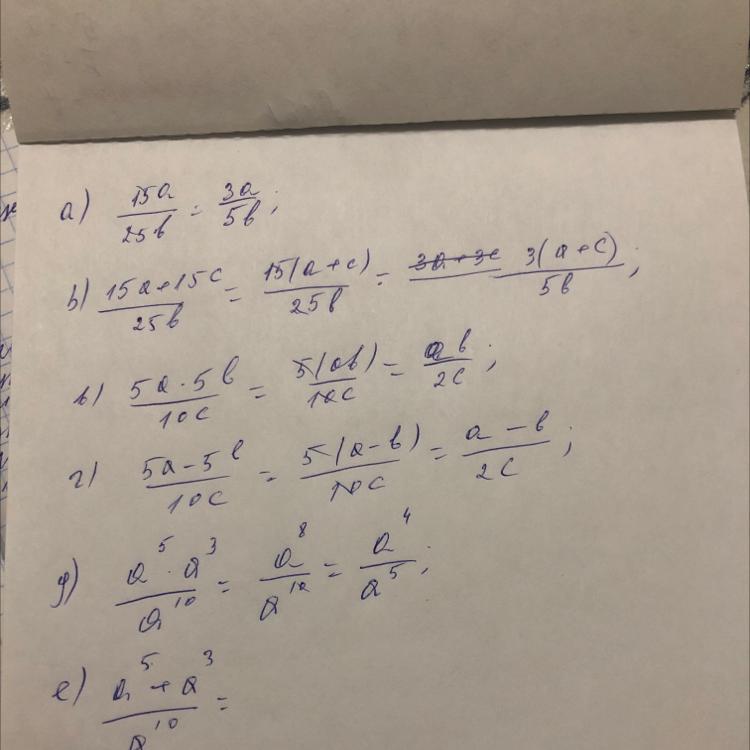 а) 15a/25b = 3a/5b;
b) 15a+15c/25b = 15(a+c)/25b = ~~3a+3c~~ 3(a+c)/5b;
в) 5a·5b/10c = 5(ab)/10c = ab/2c;
г) 5a-5b/10c = 5(a-b)/10c = a-b/2c;
д) a⁵·a³/a¹⁰ = a⁸/a¹⁰ = a⁴/a⁵;
е) a⁵+a³/a¹⁰ =